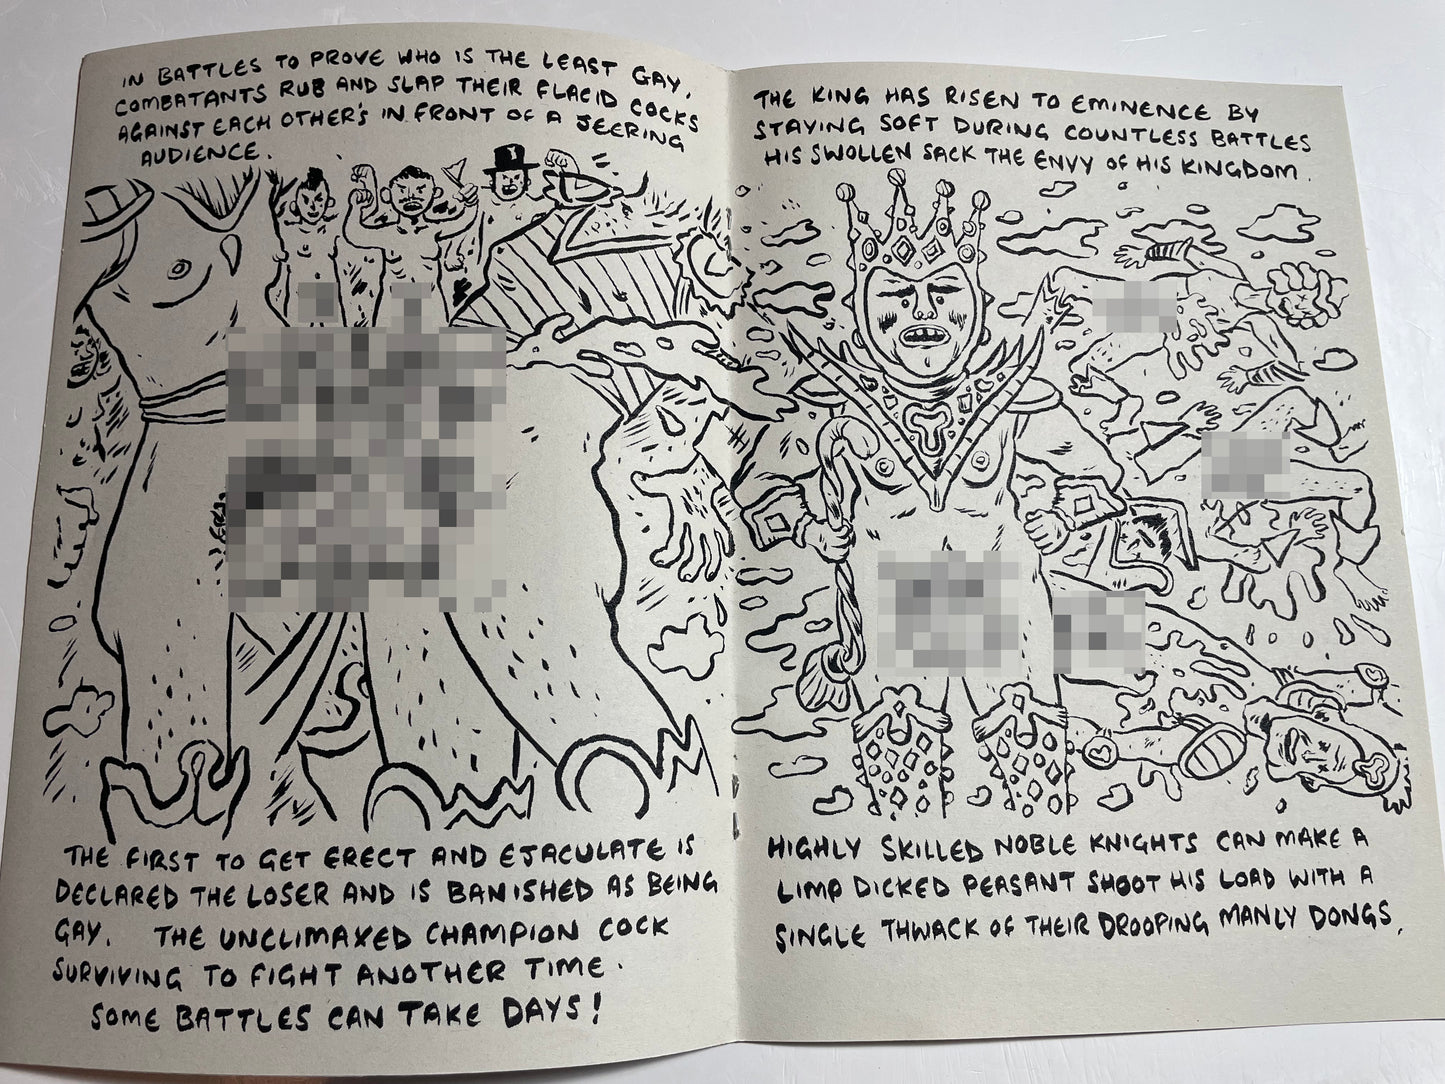 IN BATTLES TO PROVE WHO IS THE LEAST GAY,
COMBATANTS RUB AND SLAP THEIR FLACID COCKS
AGAINST EACH OTHER'S IN FRONT OF A JEERING
AUDIENCE.
THE FIRST TO GET ERECT AND EJACULATE IS
DECLARED THE LOSER AND IS BANISHED AS BEING
GAY. THE UNCLIMAXED CHAMPION COCK
SURVIVING TO FIGHT ANOTHER TIME.
SOME BATTLES CAN TAKE DAYS!
THE KING HAS RISEN TO EMINENCE BY
STAYING SOFT DURING COUNTLESS BATTLES
HIS SWOLLEN SACK THE ENVY OF HIS KINGDOM.
HIGHLY SKILLED NOBLE KNIGHTS CAN MAKE A
LIMP DICKED PEASANT SHOOT HIS LOAD WITH A
SINGLE THWACK OF THEIR DROOPING MANLY DONGS.